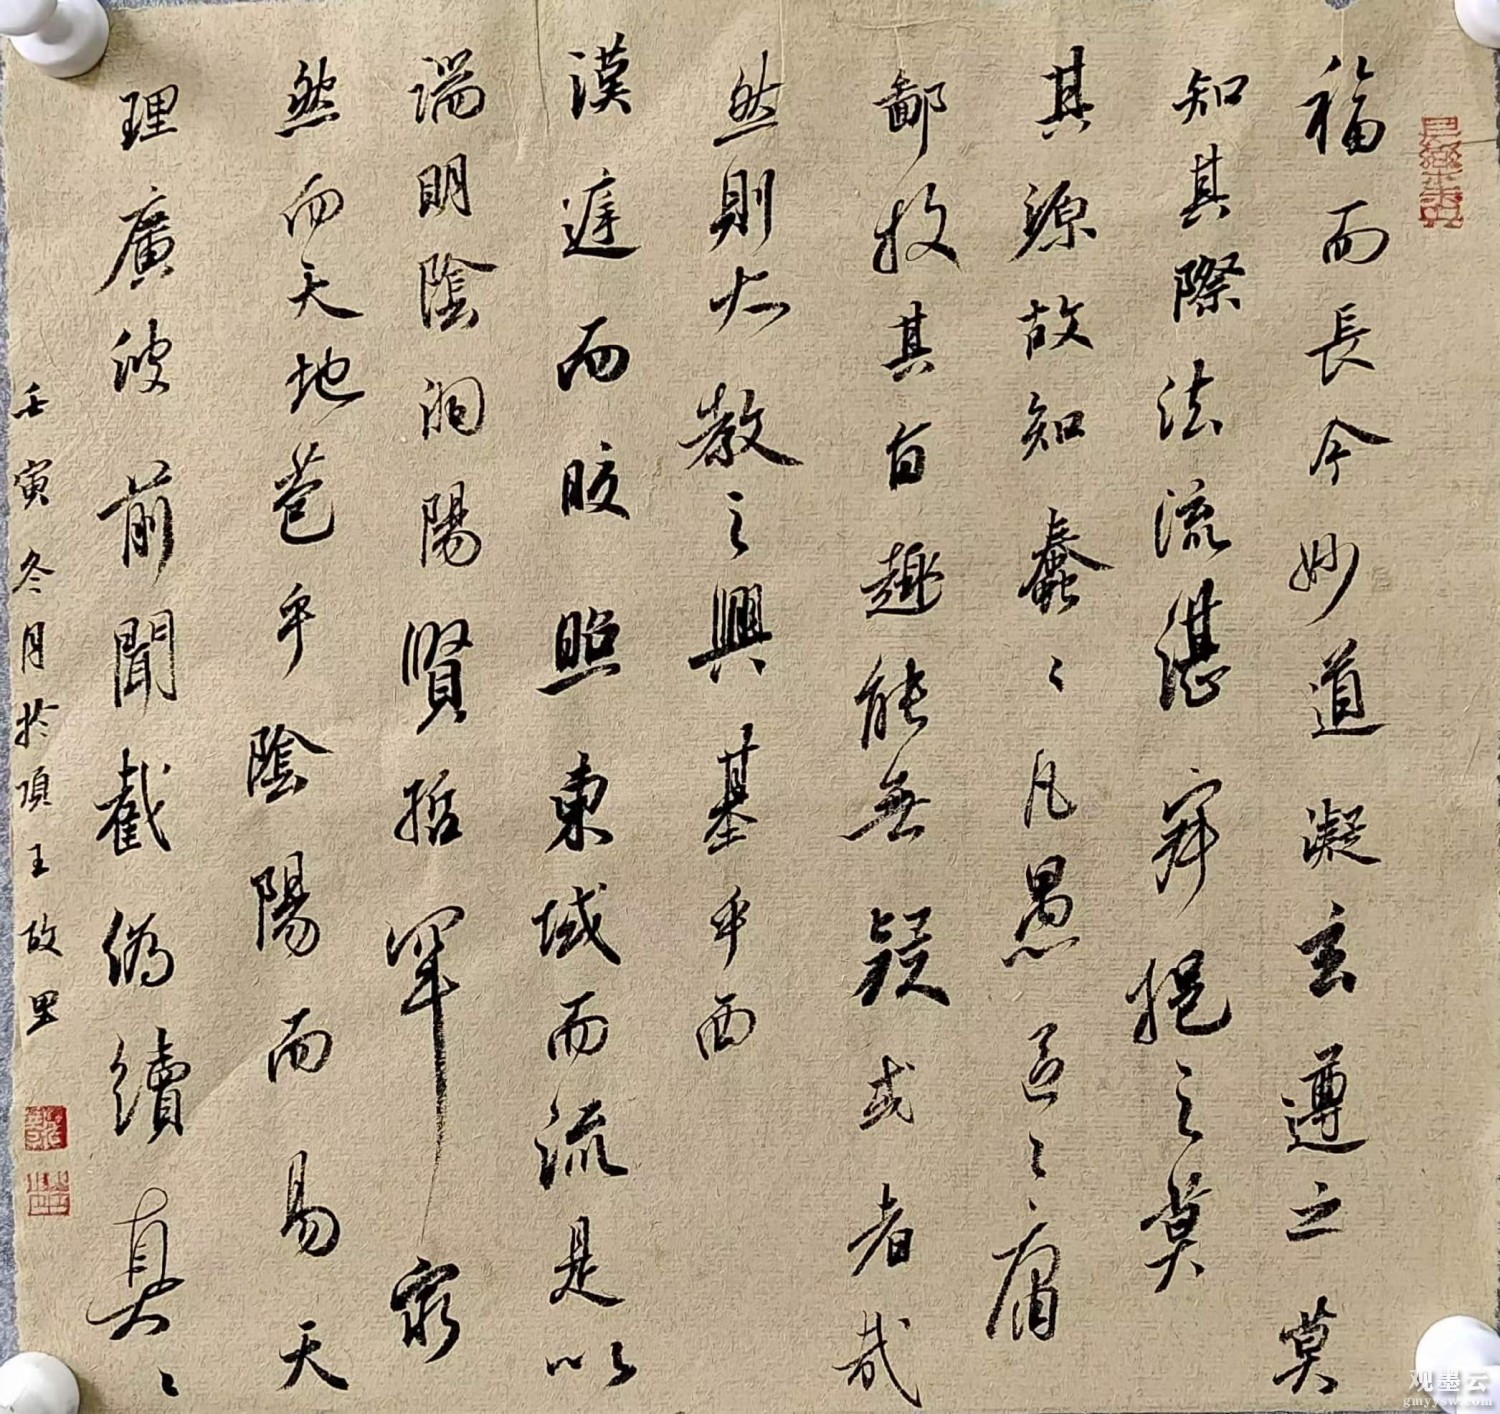 福而長今妙道凝玄遵之莫
知其際法流湛寂挹之莫
其源故知蠢〻凡愚區〻庸
鄙投其旨趣能無疑或者哉
然則大教之興基乎西
漢庭而皎照東域而流是以
端明陰洞陽賢哲罕窮
然而天地苞乎陰陽而易天
理廣彼前聞截偽續真〻
壬寅冬月於項王故里
观墨云
gmyysw.com